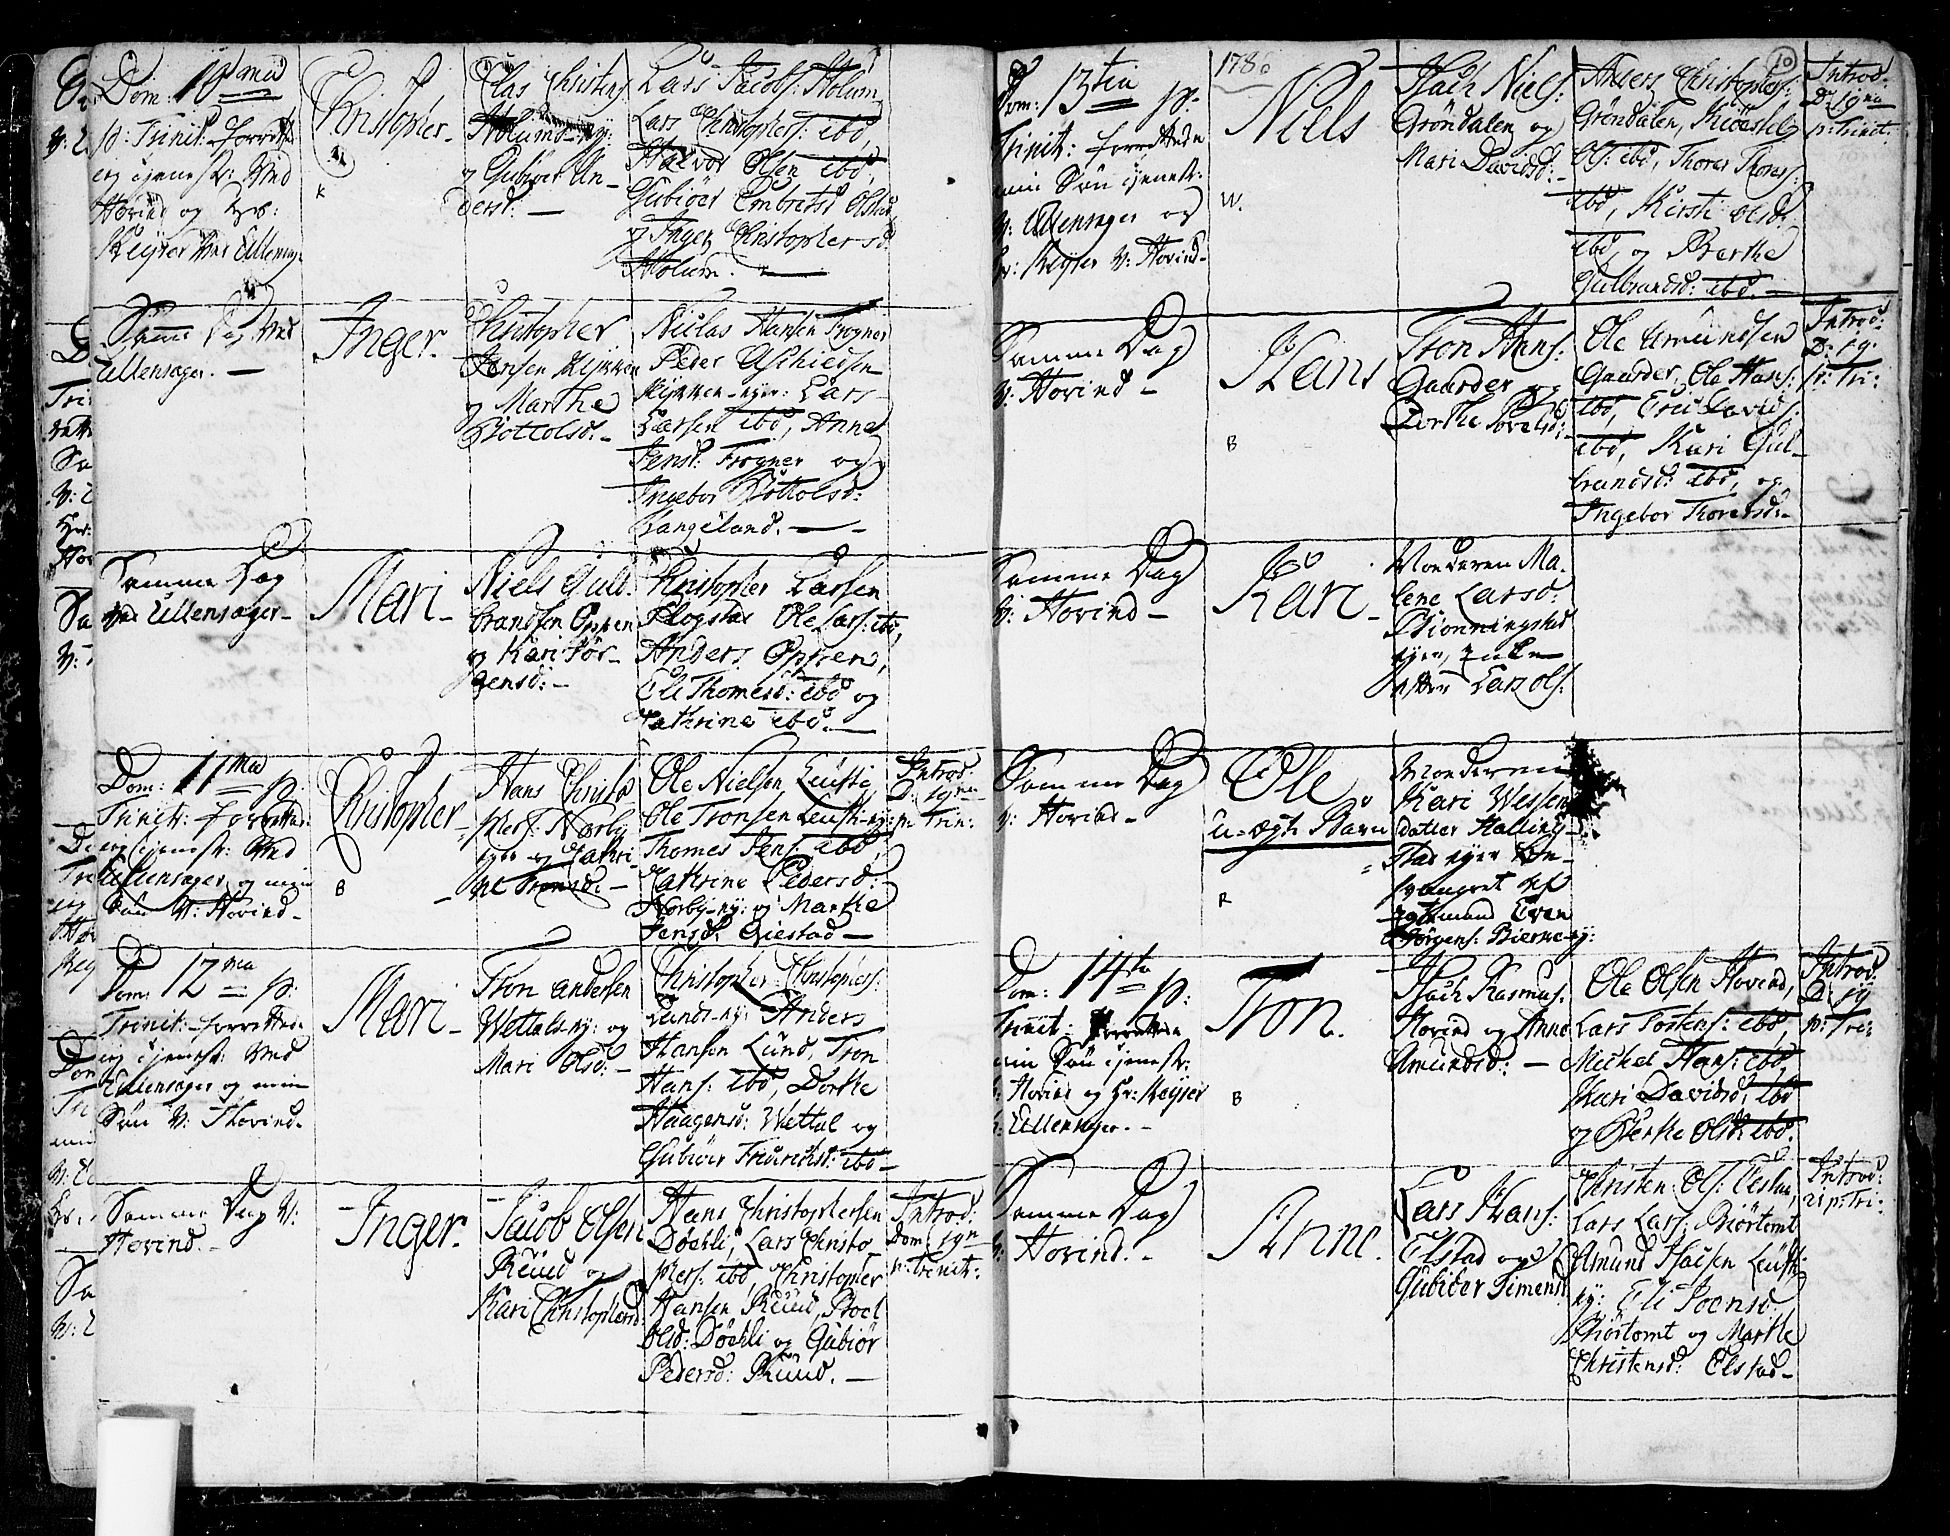 Dom: 10ma
p: Trinit: forrettede
Hovind og Hr:
Keyser ved Ullensager
Christopher
K
Clas Christens:
Holums-ey:
og Gubiør An-
dersd: —
Lars Jacobs: Holum
Lars Christophers: ibd,
Halvor Olsen ibd,
Gubiør Embretsd Olstad
og Inger Christophersd
Holum. —
Samme Dag ved
Ullensager. —
Inger.
Christopher
Jensen Kjkken
og Marthe
Bottolsd. -
Niclas Hansen Frogner
Peder
Kjkken-eyer: Lars
Larsen ibd, Anne
Jensd: Frogner og
Ingebor Bottolsd:
Langeland. —
Samme Dag
ved Ullensager -
Mari -
Niels Gul-
brandsen Oppen
og Kari Jør-
gensd: -
Christopher Larsen
Flogstad Ole Lars: ibd,
Anders Oppen,
Eli Thomesd: ibd og
Cathrine ibd. —
Dom: 11ma p:
Trinit: forrettede
Ullensager og min
Søn V: Hovind -
Christopher
B
Hans Christo-
phers: Norby
eyer og Cathri-
ne Tronsd. -
Ole Nielsen Leustj
Ole Tronsen Leust-ey:
Thomes Jens: ibd,
Cathrine Pedersd:
Norby-ey: og Marthe
Jensd: Qviestad —
Introd:
D: 19na
p: Trin:
Dom: 12ma p:
Trinit: forrettede
Ullensager og min
Søn V: Hovind.
Mari -
Tron Andersen
Wettals-ey: og
Mari Olsd: -
Christopher Christophers:
Lunds-ey: Anders
Hansen Lund, Tron
Hans: ibd, Dorthe
Haagensd: Wettal og
Gubiør Fridrichsd: ibd -
Samme Dag V:
Hovind. -
Inger.
Jacob Olsen
Ruud og
Kari Christophersd
Hans Christophersen
Døehli, Lars Christo-
phers: ibd, Christopher
Hansen Ruud, Boel
Olsd: Døehli og Gubiør
Pedersd: Ruud. —
Introd:
Dom 19n
p: Trinit:
Dom: 13tia p.
Trinit: forrettede
min Søn tienest:
V: Ullensager og
Hr: Keyser V: Hovind -
1786
Niels
W.
Isach Niels:
Grøndalen og
Mari Davidsd: -
10
Anders Christophers:
Grøndalen,
Ols: ibd, Thorer Thorers:
ibd, Kirsti Olsd:
ibd, og Berthe
Gulbrandsd: ibd. —
Introd:
D: 19na
p: Trinit:
Samme Dag
V: Hovind -
Hans
B
Tron Hans:
Gaarder og
Dorthe
Ole Amundsen
Gaarder, Ole Hans:
ibd, Eric Davids:
ibd, Kari Gul-
brandsd: ibd, og
Ingebor Thorersd: -
Introd:
D: 19.
p: Tri:
Samme Dag
V: Hovind -
Kari -
Moderen Ma-
lene Larsd:
eyer, Enke
efter Lars Ols:
Samme Dag
V: Hovind -
Ole
u-ægte Barn
R
Moderen
Kari Wessen
datter Halling-
stad eyer
svanget af
Even
Jørgens: Bierke-ey:
Dom: 14ta p:
Trinit: forrettede
min Søn tienest:
V: Hovind og Hr: Keyser
V: Ullensager. -
Tron.
B
Isach Rasmus:
Hovind og Anne
Amundsd: —
Ole Olsen Hovind,
Lars Tostens: ibd,
Michel Hans: ibd,
Kari Davidsd, ibd
og Berthe Olsd: ibd.
Introd:
D: 19
p: Tri:
Samme Dag
V: Hovind. -
Anne.
Lars Hans:
Elstad og
Gubiør Simensd
Christen Ols: Elstad,
Lars Lars: Biørtomt
Amund Isachsen Leust-
ey: Eli Joensd
Biørtomt og Marthe
Christensd: Elstad -
Introd:
21 p: Tri: